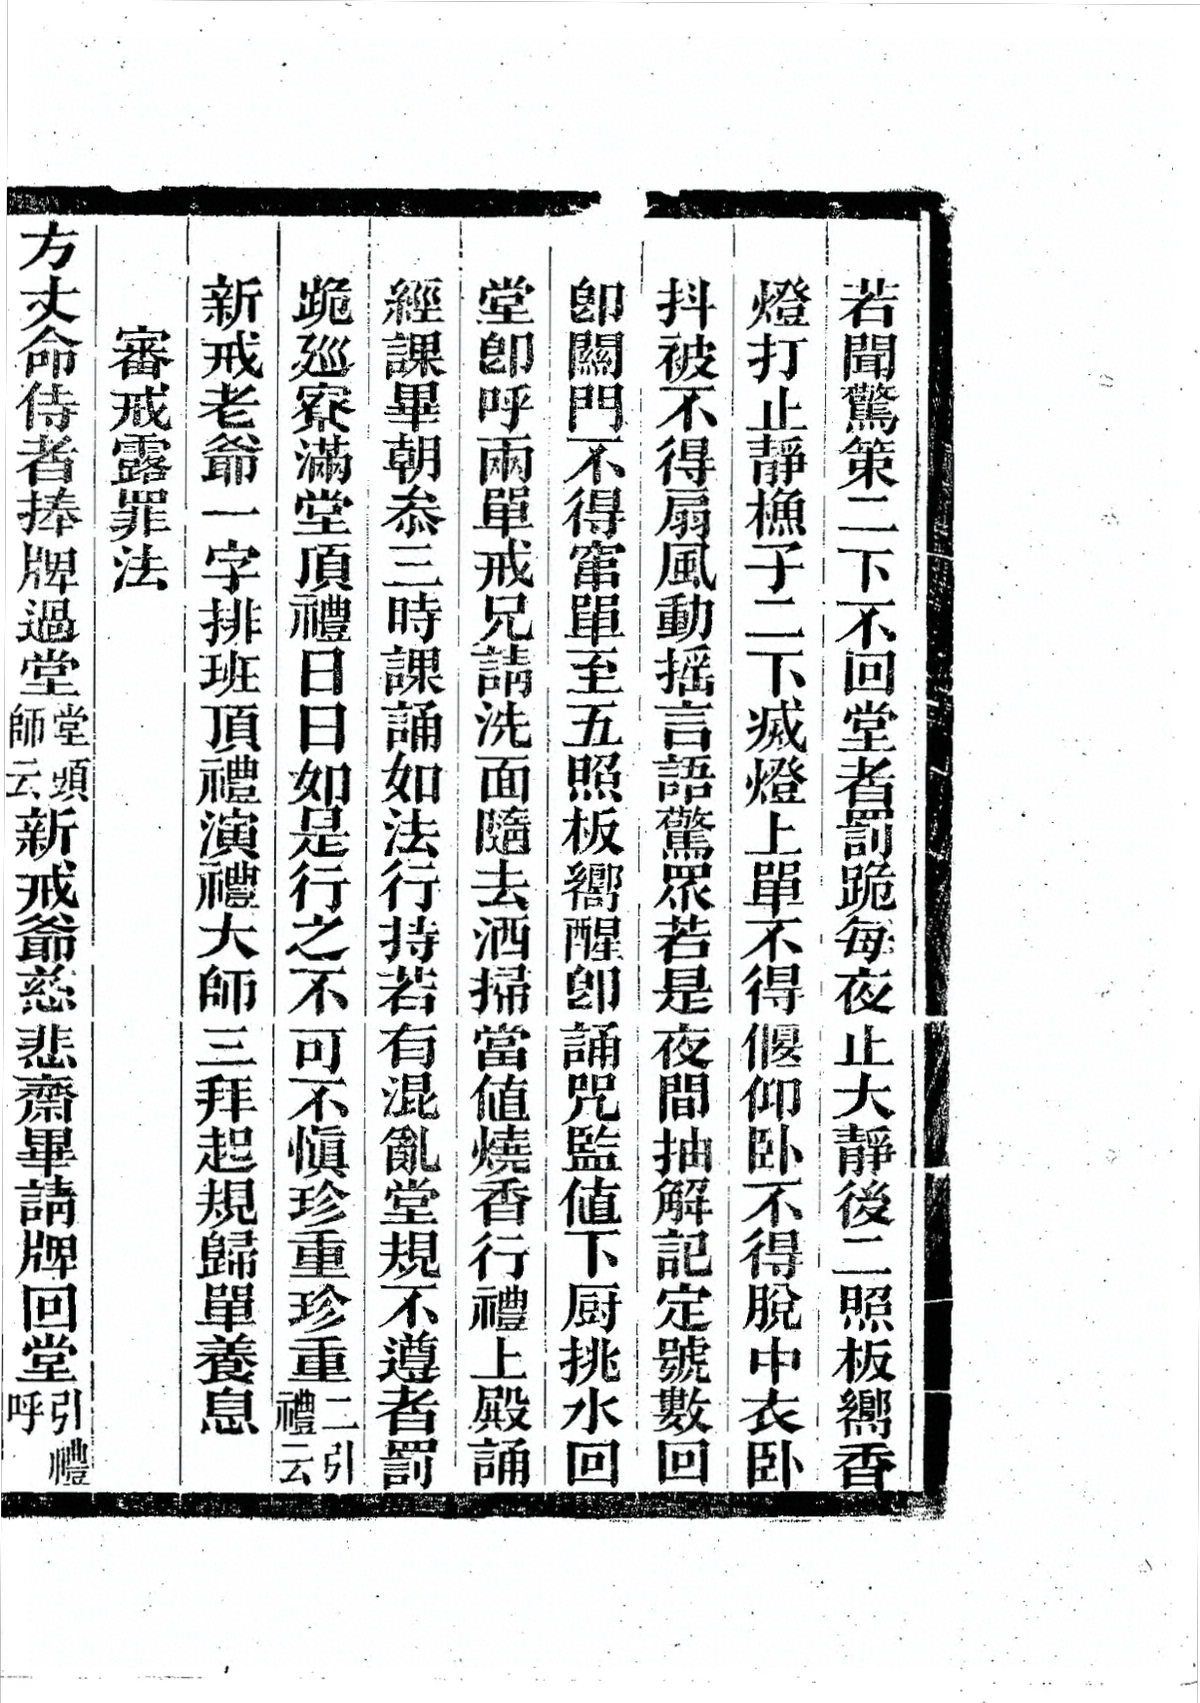 若聞驚策二下不回堂者罰跪每夜止大靜後二照板嚮香
燈打止靜樵子二下滅燈上單不得偃仰卧不得脫中衣卧
抖被不得扇風動揺言語驚眾若是夜間抽解記定號數回
卽關門不得竄單至五照板嚮醒卽誦咒監値下厨挑水回
堂卽呼兩單戒兄請洗面隨去洒掃當値燒香行禮上殿誦
經課畢朝叅三時課誦如法行持若有混亂堂規不遵者罰
跪廵寮滿堂頂禮日日如是行之不可不愼珍重珍重二引禮云
新戒老爺一字排班頂禮演禮大師三拜起規歸單養息
審戒露罪法
方丈命侍者捧牌過堂堂頭師云新戒爺慈悲齋畢請牌回堂引禮呼